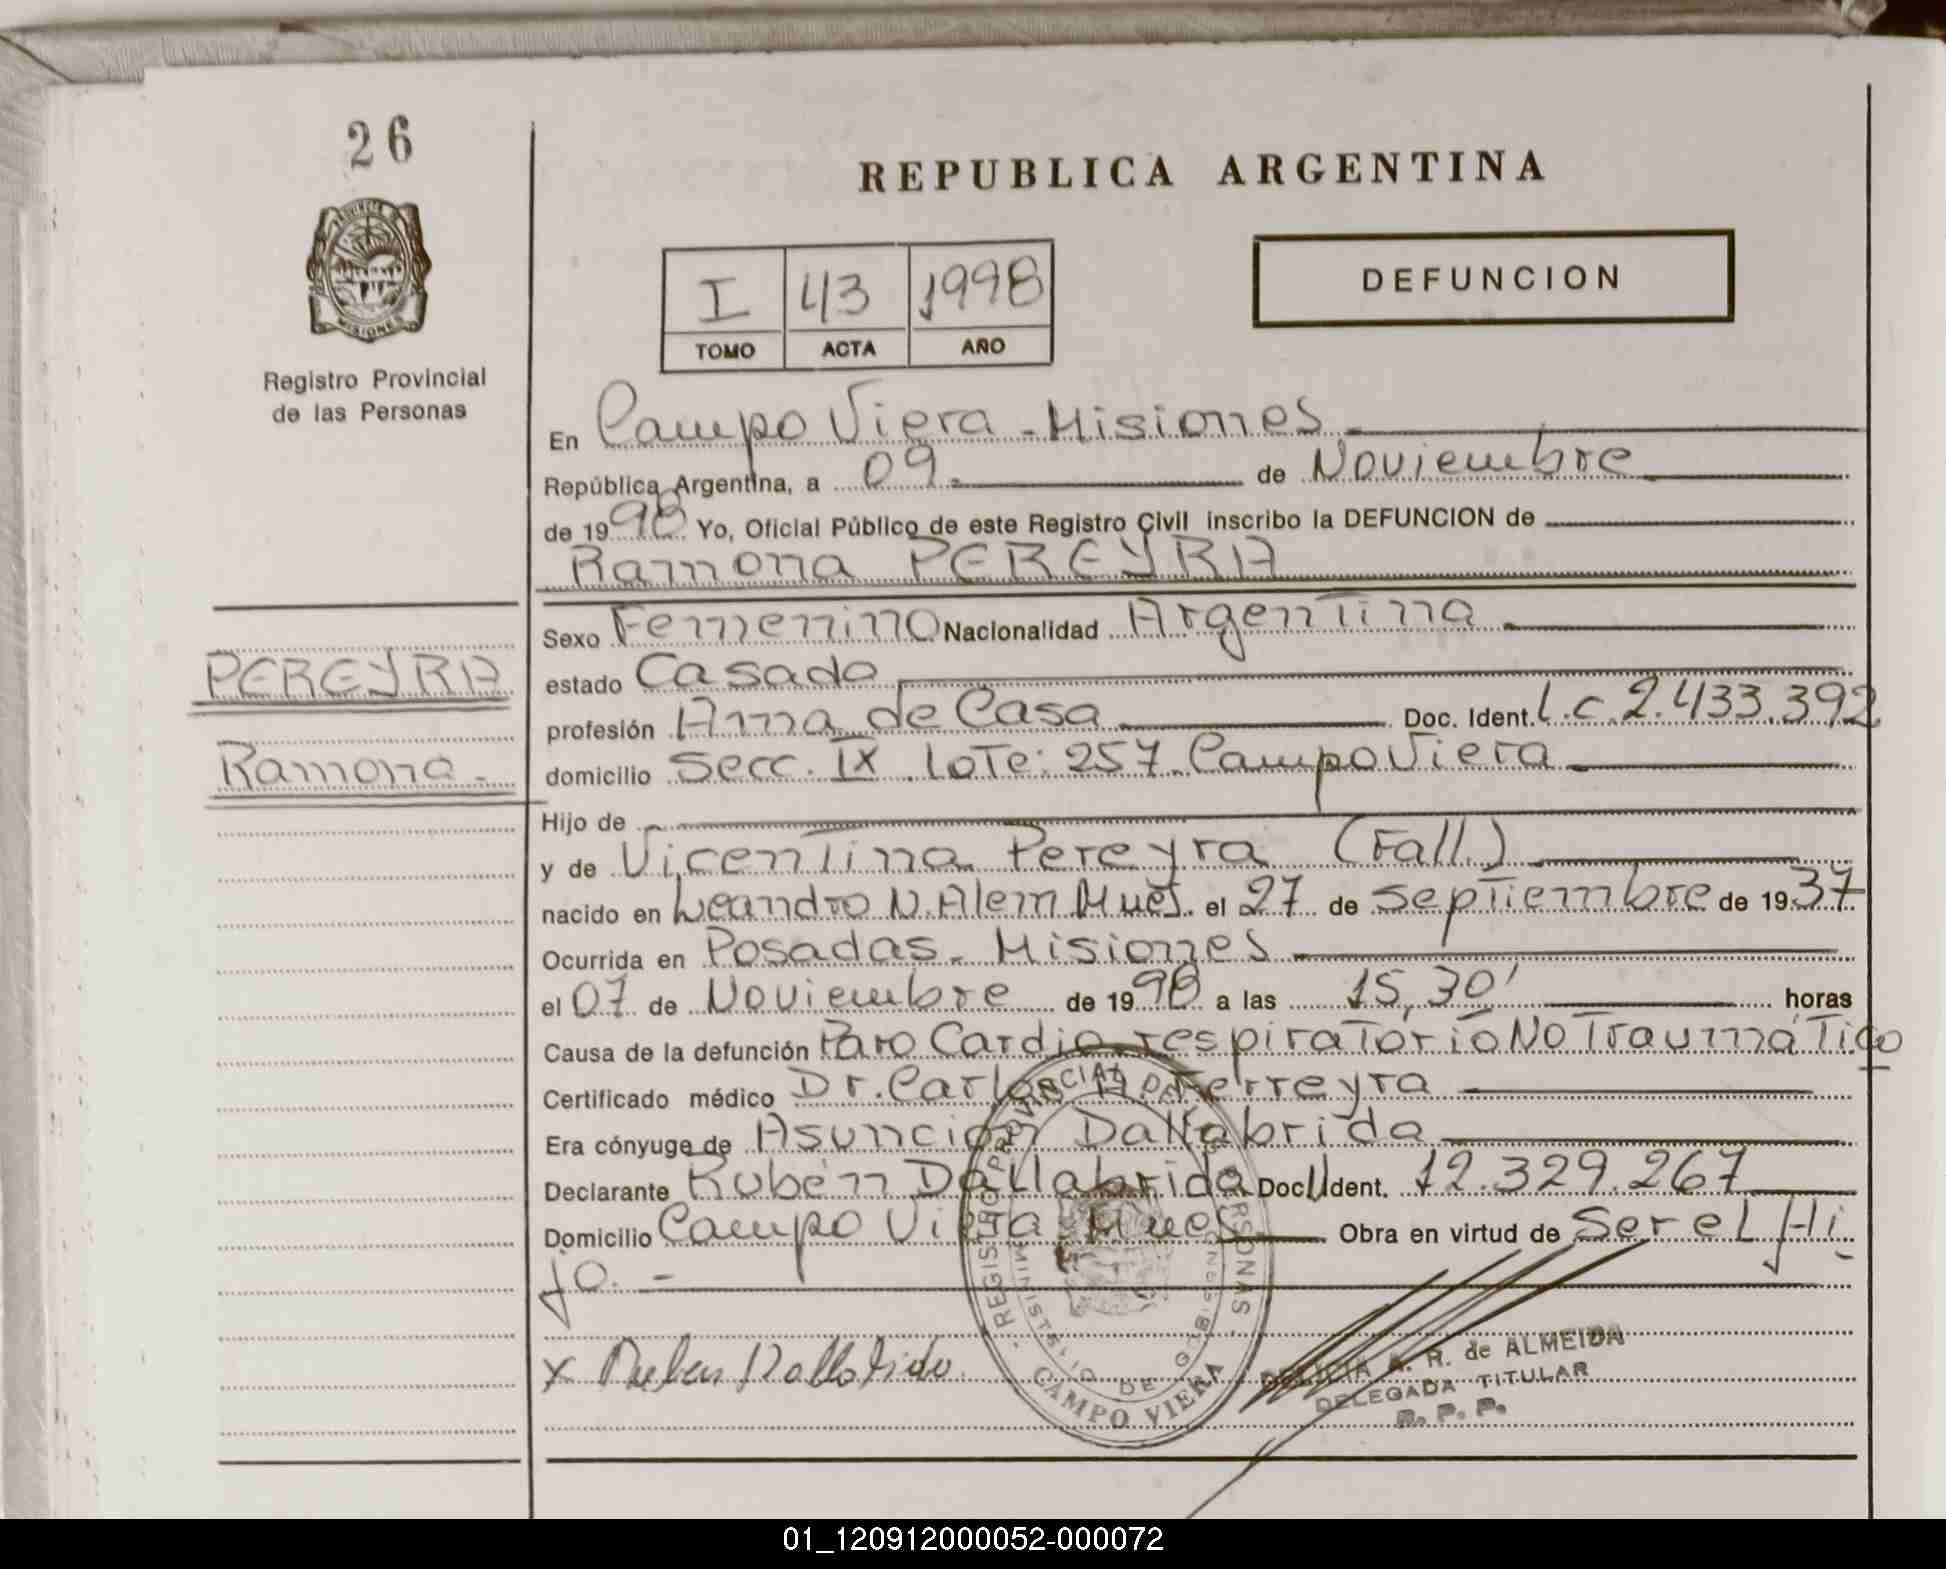 26
PROVINCIA DE
MISIONES
Registro Provincial
de las Personas
REPUBLICA ARGENTINA
I 43 1998
TOMO ACTA AÑO
DEFUNCION
En Campo Viera - Misiones
República Argentina, a 09 de Noviembre
de 1998 Yo, Oficial Público de este Registro Civil inscribo la DEFUNCION de
Ramona PEREYRA
PEREYRA
Ramona.-
Sexo Femenino Nacionalidad Argentina
estado Casado
profesión Ama de Casa Doc. Ident. L.c. 2.433.392
domicilio Secc. IX. Lote: 257. Campo Viera
Hijo de
y de Vicentina Pereyra (Fall.)
nacido en Leandro N. Alem Mnes. el 27 de Septiembre de 1937
Ocurrida en Posadas - Misiones
el 07 de Noviembre de 1998 a las 15,30' horas
Causa de la defunción Paro Cardio respiratorio No Traumático
Certificado médico Dr. Carlos Ferreyra
Era cónyuge de Asunción Dallabrida
Declarante Rubén Dallabrida Doc. Ident. 12.329.267
Domicilio Campo Viera Mnes Obra en virtud de Ser el Hi
jo. -
x Ruben Dallabrida
REGISTRO PROVINCIAL DE LAS PERSONAS
MINISTERIO DE GOBIERNO
CAMPO VIERA
A. R. de ALMEIDA
DELEGADA TITULAR
R. P. P.
01_120912000052-000072